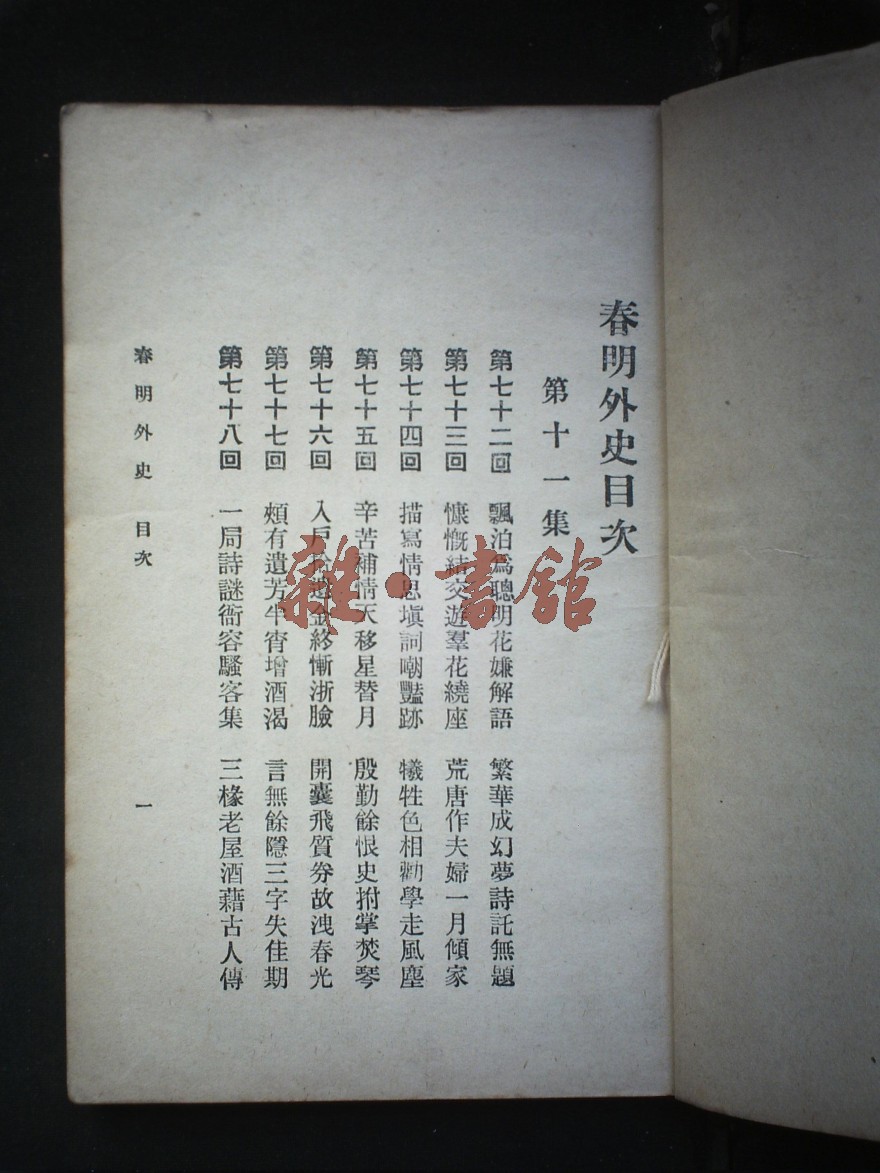 春明外史目次
第十一集
第七十二回 飄泊爲聰明花嫌解語 繁華成幻夢詩託無題
第七十三回 慷慨結交遊羣花繞座 荒唐作夫婦一月傾家
第七十四回 描寫情思塡詞嘲豔跡 犧牲色相勸學走風塵
第七十五回 辛苦補情天移星替月 殷勤餘恨史拊掌焚琴
第七十六回 入戶拾遺金終慚浙臉 開囊飛質劵故洩春光
第七十七回 頰有遺芳半宵增酒渴 言無餘隱三字失佳期
第七十八回 一局詩謎衙容騷客集 三椽老屋酒藉古人傳
春明外史 目次
一
雜·書館